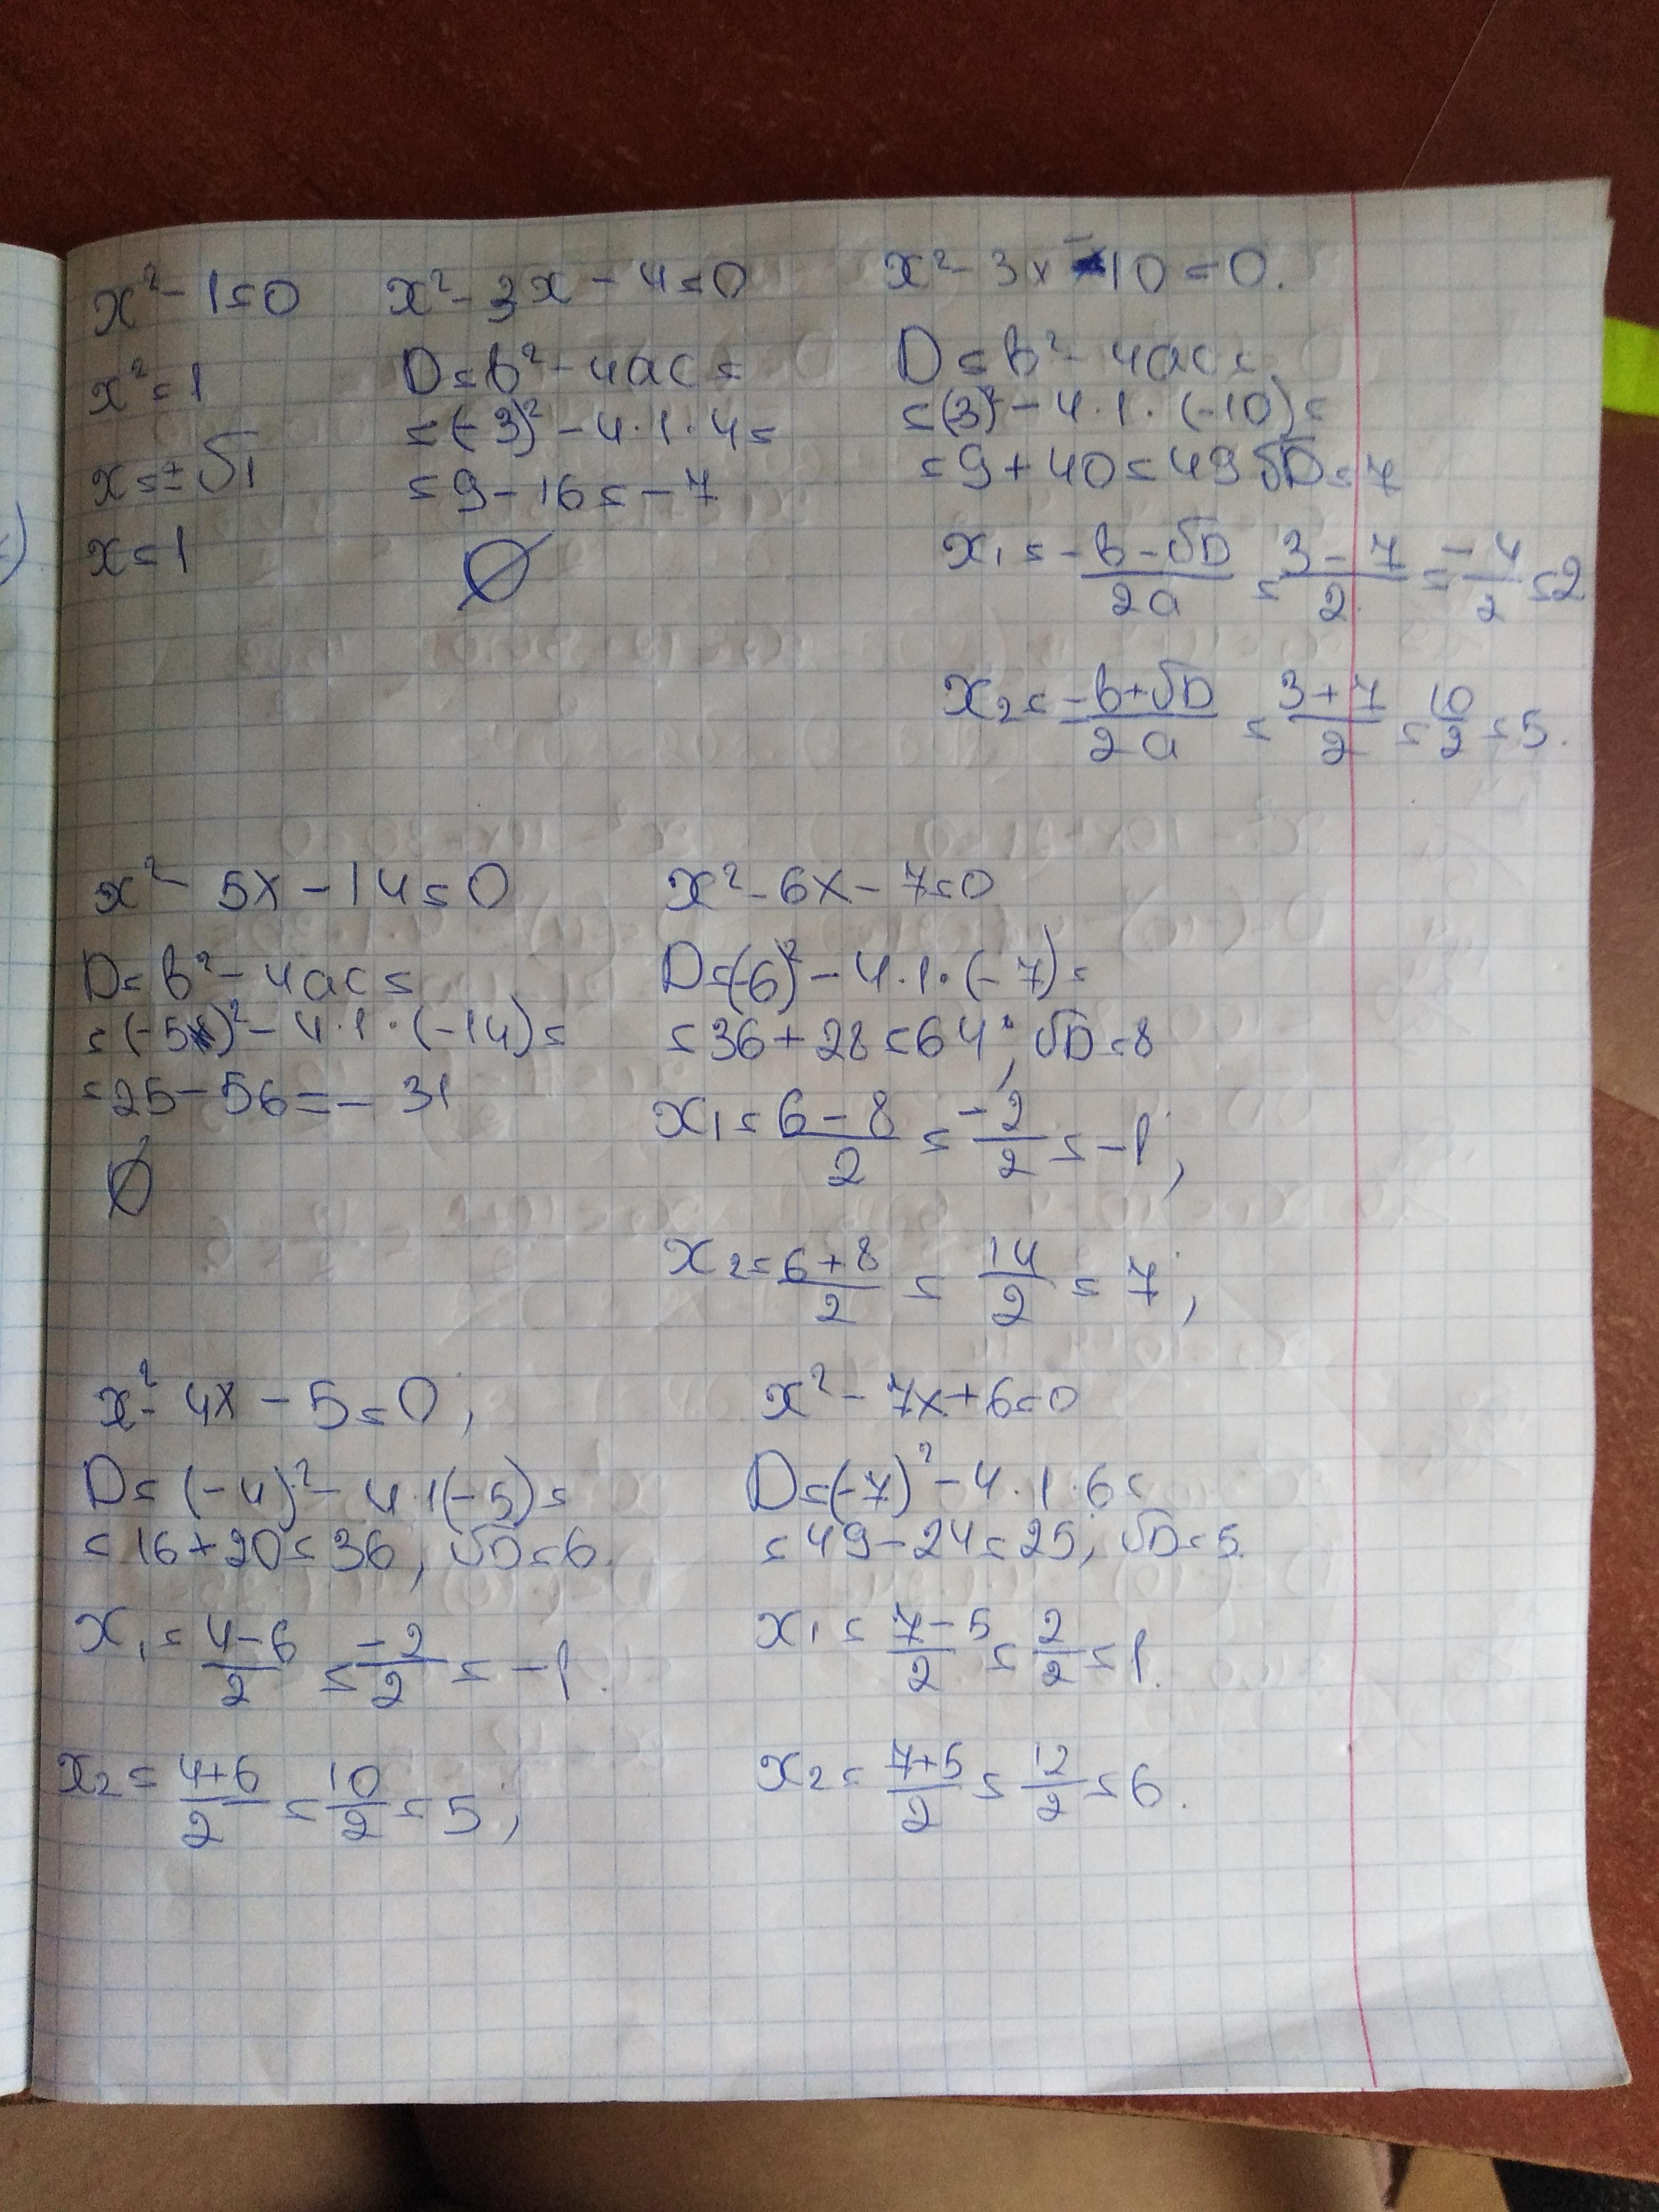 x² - 1 = 0
x² = 1
x = ± √1
x = 1
x² - 3x - 4 = 0
D = b² - 4ac =
= (-3)² - 4 · 1 · 4 =
= 9 - 16 = - 7
∅
x² - 3x - 10 = 0.
D = b² - 4ac =
= (3)² - 4 · 1 · (-10) =
= 9 + 40 = 49 √D = 7
x₁ = (-b - √D)/2a = (3 - 7)/2 = -4/2 = 2
x₂ = (-b + √D)/2a = (3 + 7)/2 = 10/2 = 5.
x² - 5x - 14 = 0
D = b² - 4ac =
= (-5)² - 4 · 1 · (-14) =
= 25 - 56 = - 31
∅
x² - 6x - 7 = 0
D = (-6)² - 4 · 1 · (-7) =
= 36 + 28 = 64; √D = 8
x₁ = (6 - 8)/2 = -2/2 = -1;
x₂ = (6 + 8)/2 = 14/2 = 7;
x² - 4x - 5 = 0;
D = (-4)² - 4 · 1(-5) =
= 16 + 20 = 36, √D = 6
x₁ = (4 - 6)/2 = -2/2 = -1.
x₂ = (4 + 6)/2 = 10/2 = 5;
x² - 7x + 6 = 0
D = (-7)² - 4 · 1 · 6 =
= 49 - 24 = 25; √D = 5.
x₁ = (7 - 5)/2 = 2/2 = 1.
x₂ = (7 + 5)/2 = 12/2 = 6.